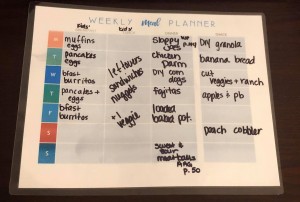 WEEKLY meal PLANNER
kids:
kids:
M
muffins
eggs
T
pancakes
eggs
W
bfast
burritos
T
pancakes +
eggs
F
bfast
burritos
S
S
leftovers
sandwiches
nuggets
+1
veggie
Sloppy
Joes
chicken
parm
DIY corn
dogs
fajitas
loaded
baked pot.
sweet &
sour
meatballs
p. 50
DIY granola
banana bread
cut
veggies + ranch
apples + pb
peach cobbler